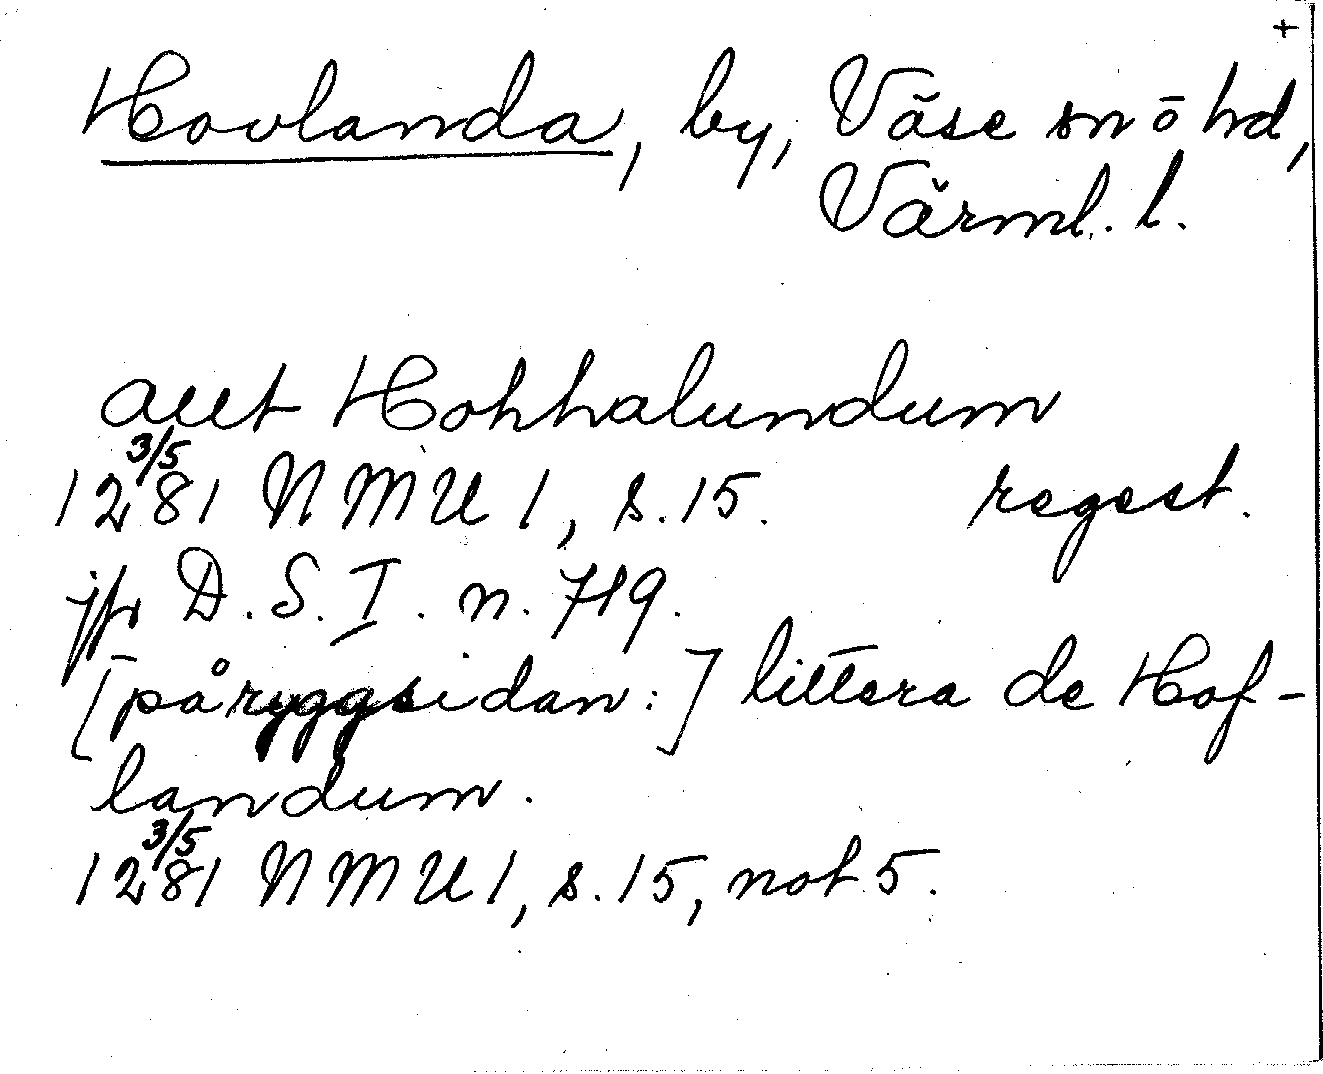 +
Hovlanda, by, Väse sn ō hd,
Värml. l.
aut Hohhalundum
12 3/5 81 NMU 1, s. 15. regest.
jfr D. S. I. n. 719.
[på ryggsidan:] littera de Hof-
landum.
12 3/5 81 NMU 1, s. 15, not 5.